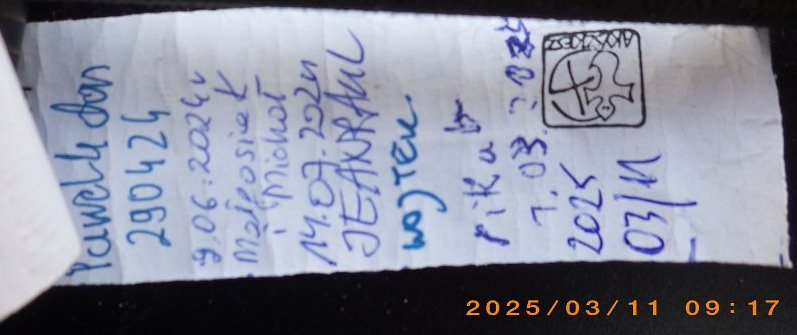 290424
9.06.2024r
Małgosia K
i Michał
14.07.2024
JEANPAUL
WOJTEK
1.03.2025
2025
03/11
2025/03/11 09:17